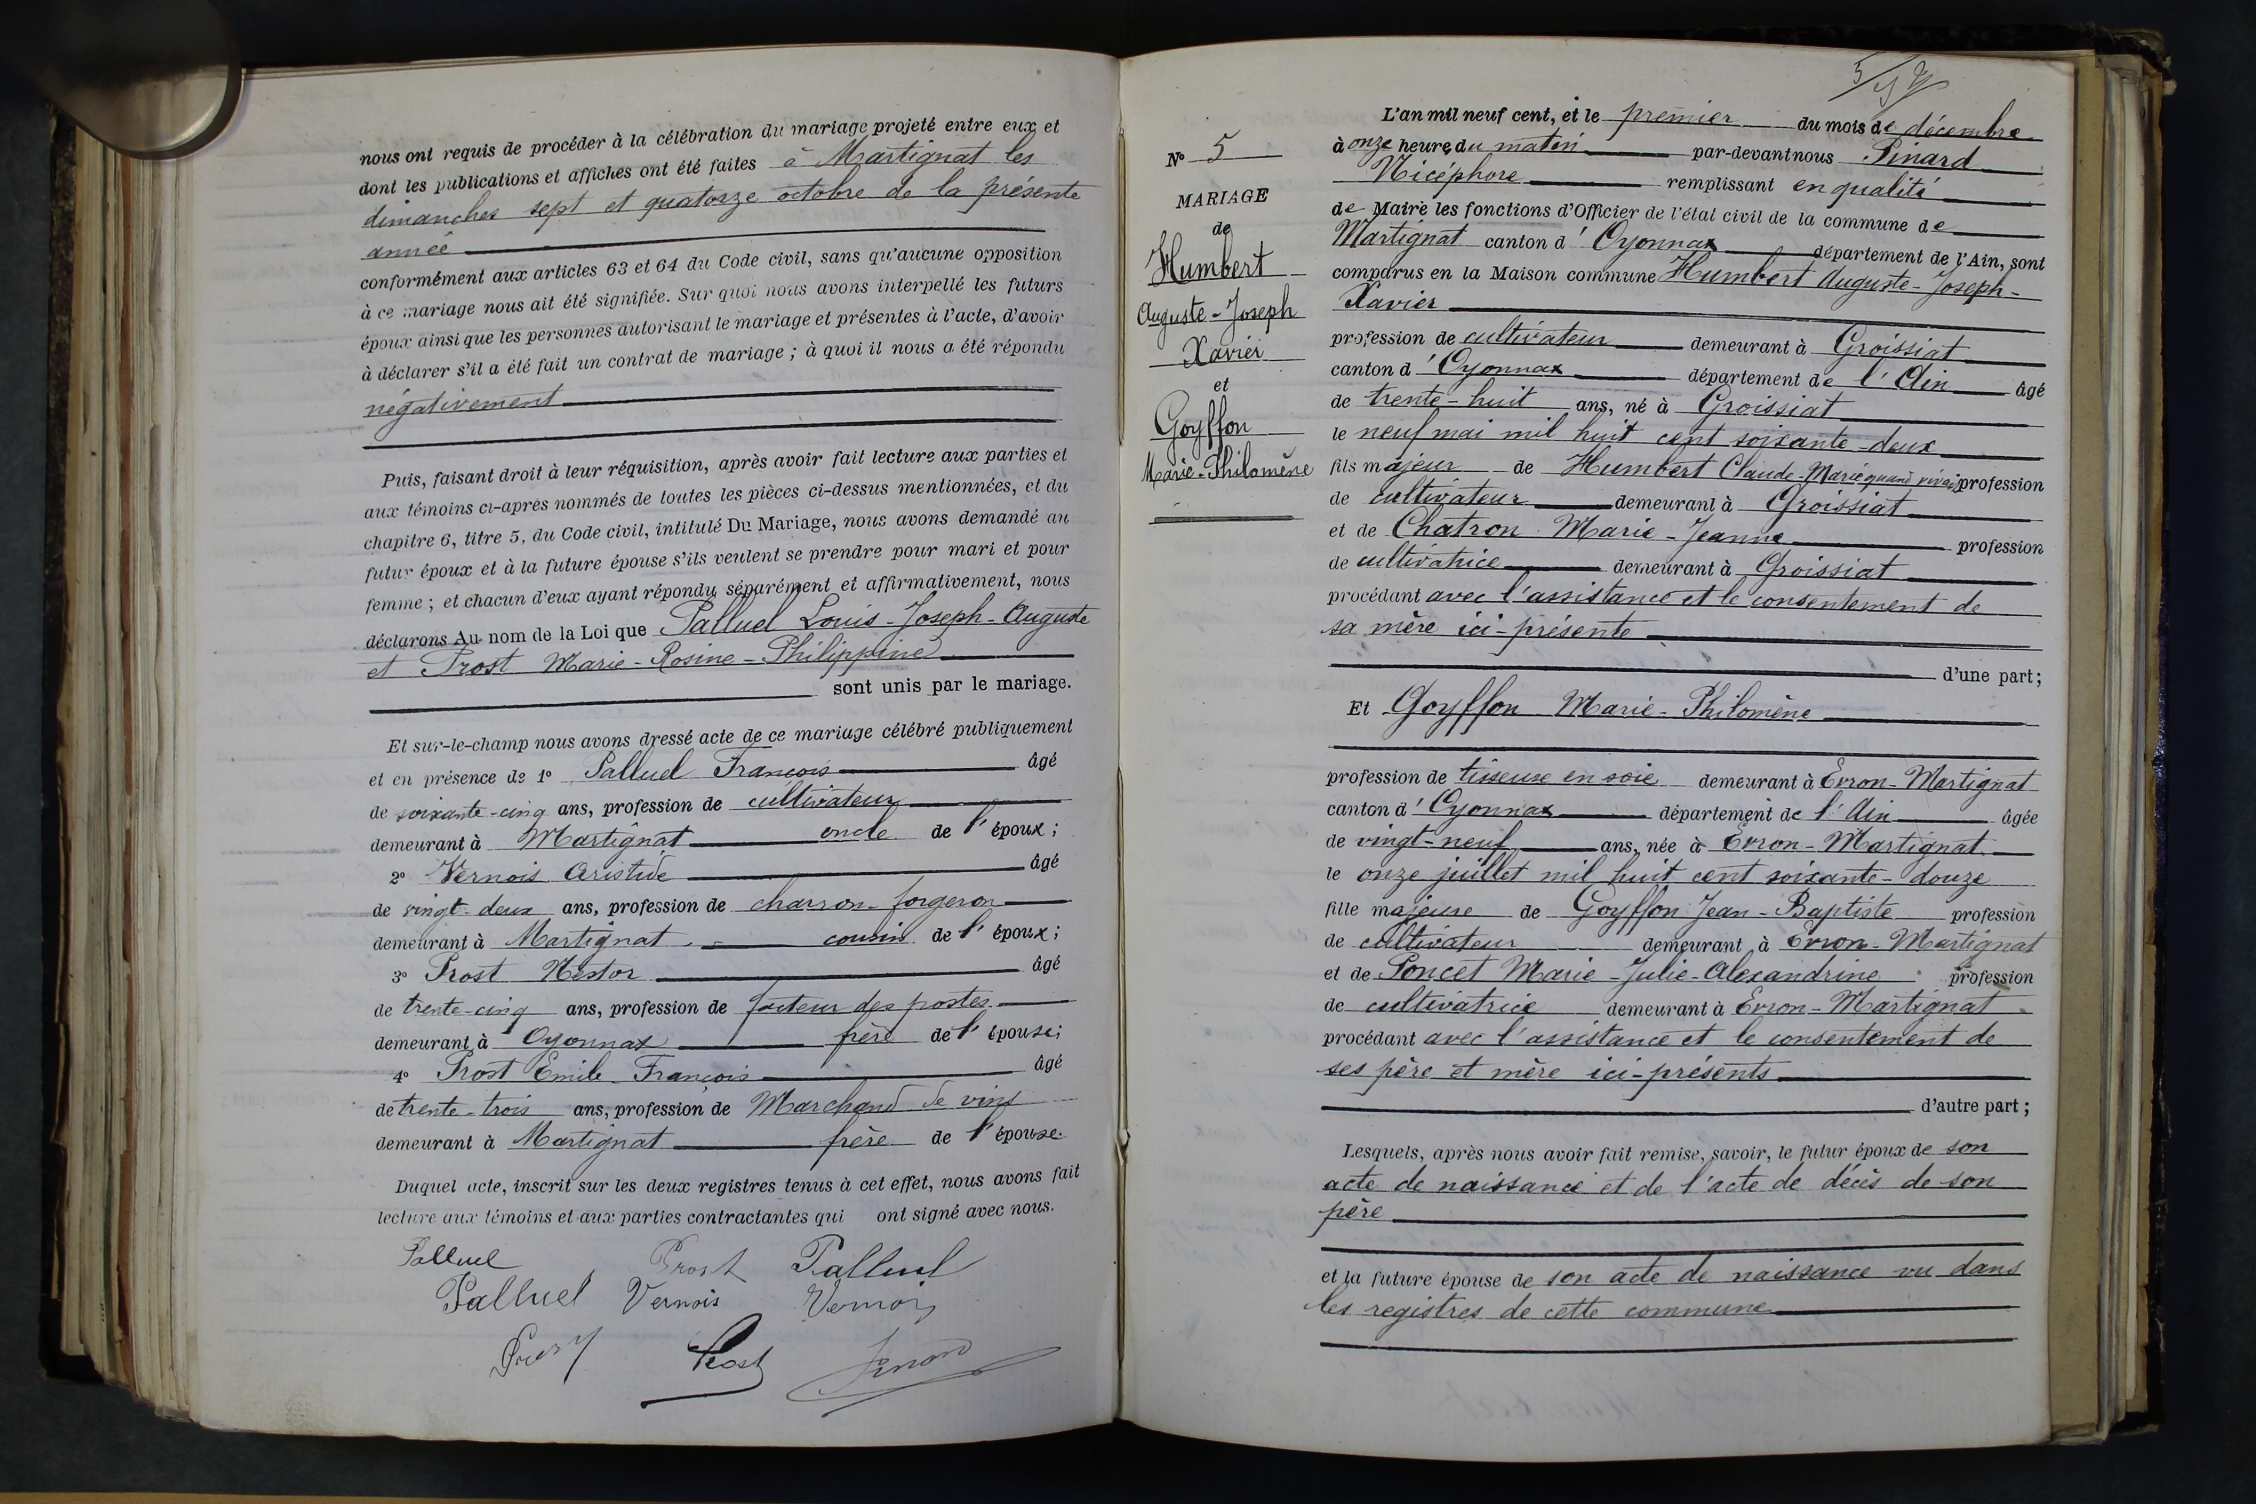 nous ont requis de procéder à la célébration du mariage projeté entre eux et
dont les publications et affiches ont été faites à Martignat les
dimanches sept et quatorze octobre de la présente
année
conformément aux articles 63 et 64 du Code civil, sans qu'aucune opposition
à ce mariage nous ait été signifiée. Sur quoi nous avons interpellé les futurs
époux ainsi que les personnes autorisant le mariage et présentes à l'acte, d'avoir
à déclarer s'il a été fait un contrat de mariage ; à quoi il nous a été répondu
négativement
Puis, faisant droit à leur réquisition, après avoir fait lecture aux parties et
aux témoins ci-après nommés de toutes les pièces ci-dessus mentionnées, et du
chapitre 6, titre 5, du Code civil, intitulé Du Mariage, nous avons demandé au
futur époux et à la future épouse s'ils veulent se prendre pour mari et pour
femme ; et chacun d'eux ayant répondu séparément et affirmativement, nous
déclarons Au nom de la Loi que Palluel Louis-Joseph-Auguste
et Prost Marie-Rosine-Philippine
sont unis par le mariage.
Et sur-le-champ nous avons dressé acte de ce mariage célébré publiquement
et en présence de 1° Palluel François âgé
de soixante-cinq ans, profession de cultivateur
demeurant à Martignat oncle de l'époux ;
2° Vernois Aristide âgé
de vingt-deux ans, profession de charron-forgeron
demeurant à Martignat cousin de l'époux ;
3° Prost Nestor âgé
de trente-cinq ans, profession de facteur des postes
demeurant à Oyonnax frère de l'épouse ;
4° Prost Emile-François âgé
de trente-trois ans, profession de Marchand de vins
demeurant à Martignat frère de l'épouse.
Duquel acte, inscrit sur les deux registres tenus à cet effet, nous avons fait
lecture aux témoins et aux parties contractantes qui ont signé avec nous.
Palluel Prost Palluel
Palluel Vernois Vernois
Prost Prost Pinard
5
N° 5
MARIAGE
de
Humbert
Auguste-Joseph
Xavier
et
Goyffon
Marie-Philomène
L'an mil neuf cent, et le premier du mois de décembre
à onze heures du matin par-devant nous Pinard
Nicéphore remplissant en qualité
de Maire les fonctions d'Officier de l'état civil de la commune de
Martignat canton d'Oyonnax département de l'Ain, sont
comparus en la Maison commune Humbert Auguste-Joseph-
Xavier
profession de cultivateur demeurant à Groissiat
canton d'Oyonnax département de l'Ain âgé
de trente-huit ans, né à Groissiat
le neuf mai mil huit cent soixante-deux
fils majeur de Humbert Claude-Marie quand vivait profession
de cultivateur demeurant à Groissiat
et de Chatron Marie-Jeanne profession
de cultivatrice demeurant à Groissiat
procédant avec l'assistance et le consentement de
sa mère ici-présente
d'une part ;
Et Goyffon Marie-Philomène
profession de tisseuse en soie demeurant à Evron-Martignat
canton d'Oyonnax département de l'Ain âgée
de vingt-neuf ans, née à Evron-Martignat
le onze juillet mil huit cent soixante-douze
fille majeure de Goyffon Jean-Baptiste profession
de cultivateur demeurant à Evron-Martignat
et de Poncet Marie-Julie-Alexandrine profession
de cultivatrice demeurant à Evron-Martignat
procédant avec l'assistance et le consentement de
ses père et mère ici-présents
d'autre part ;
Lesquels, après nous avoir fait remise, savoir, le futur époux de son
acte de naissance et de l'acte de décès de son
père
et la future épouse de son acte de naissance vu dans
les registres de cette commune